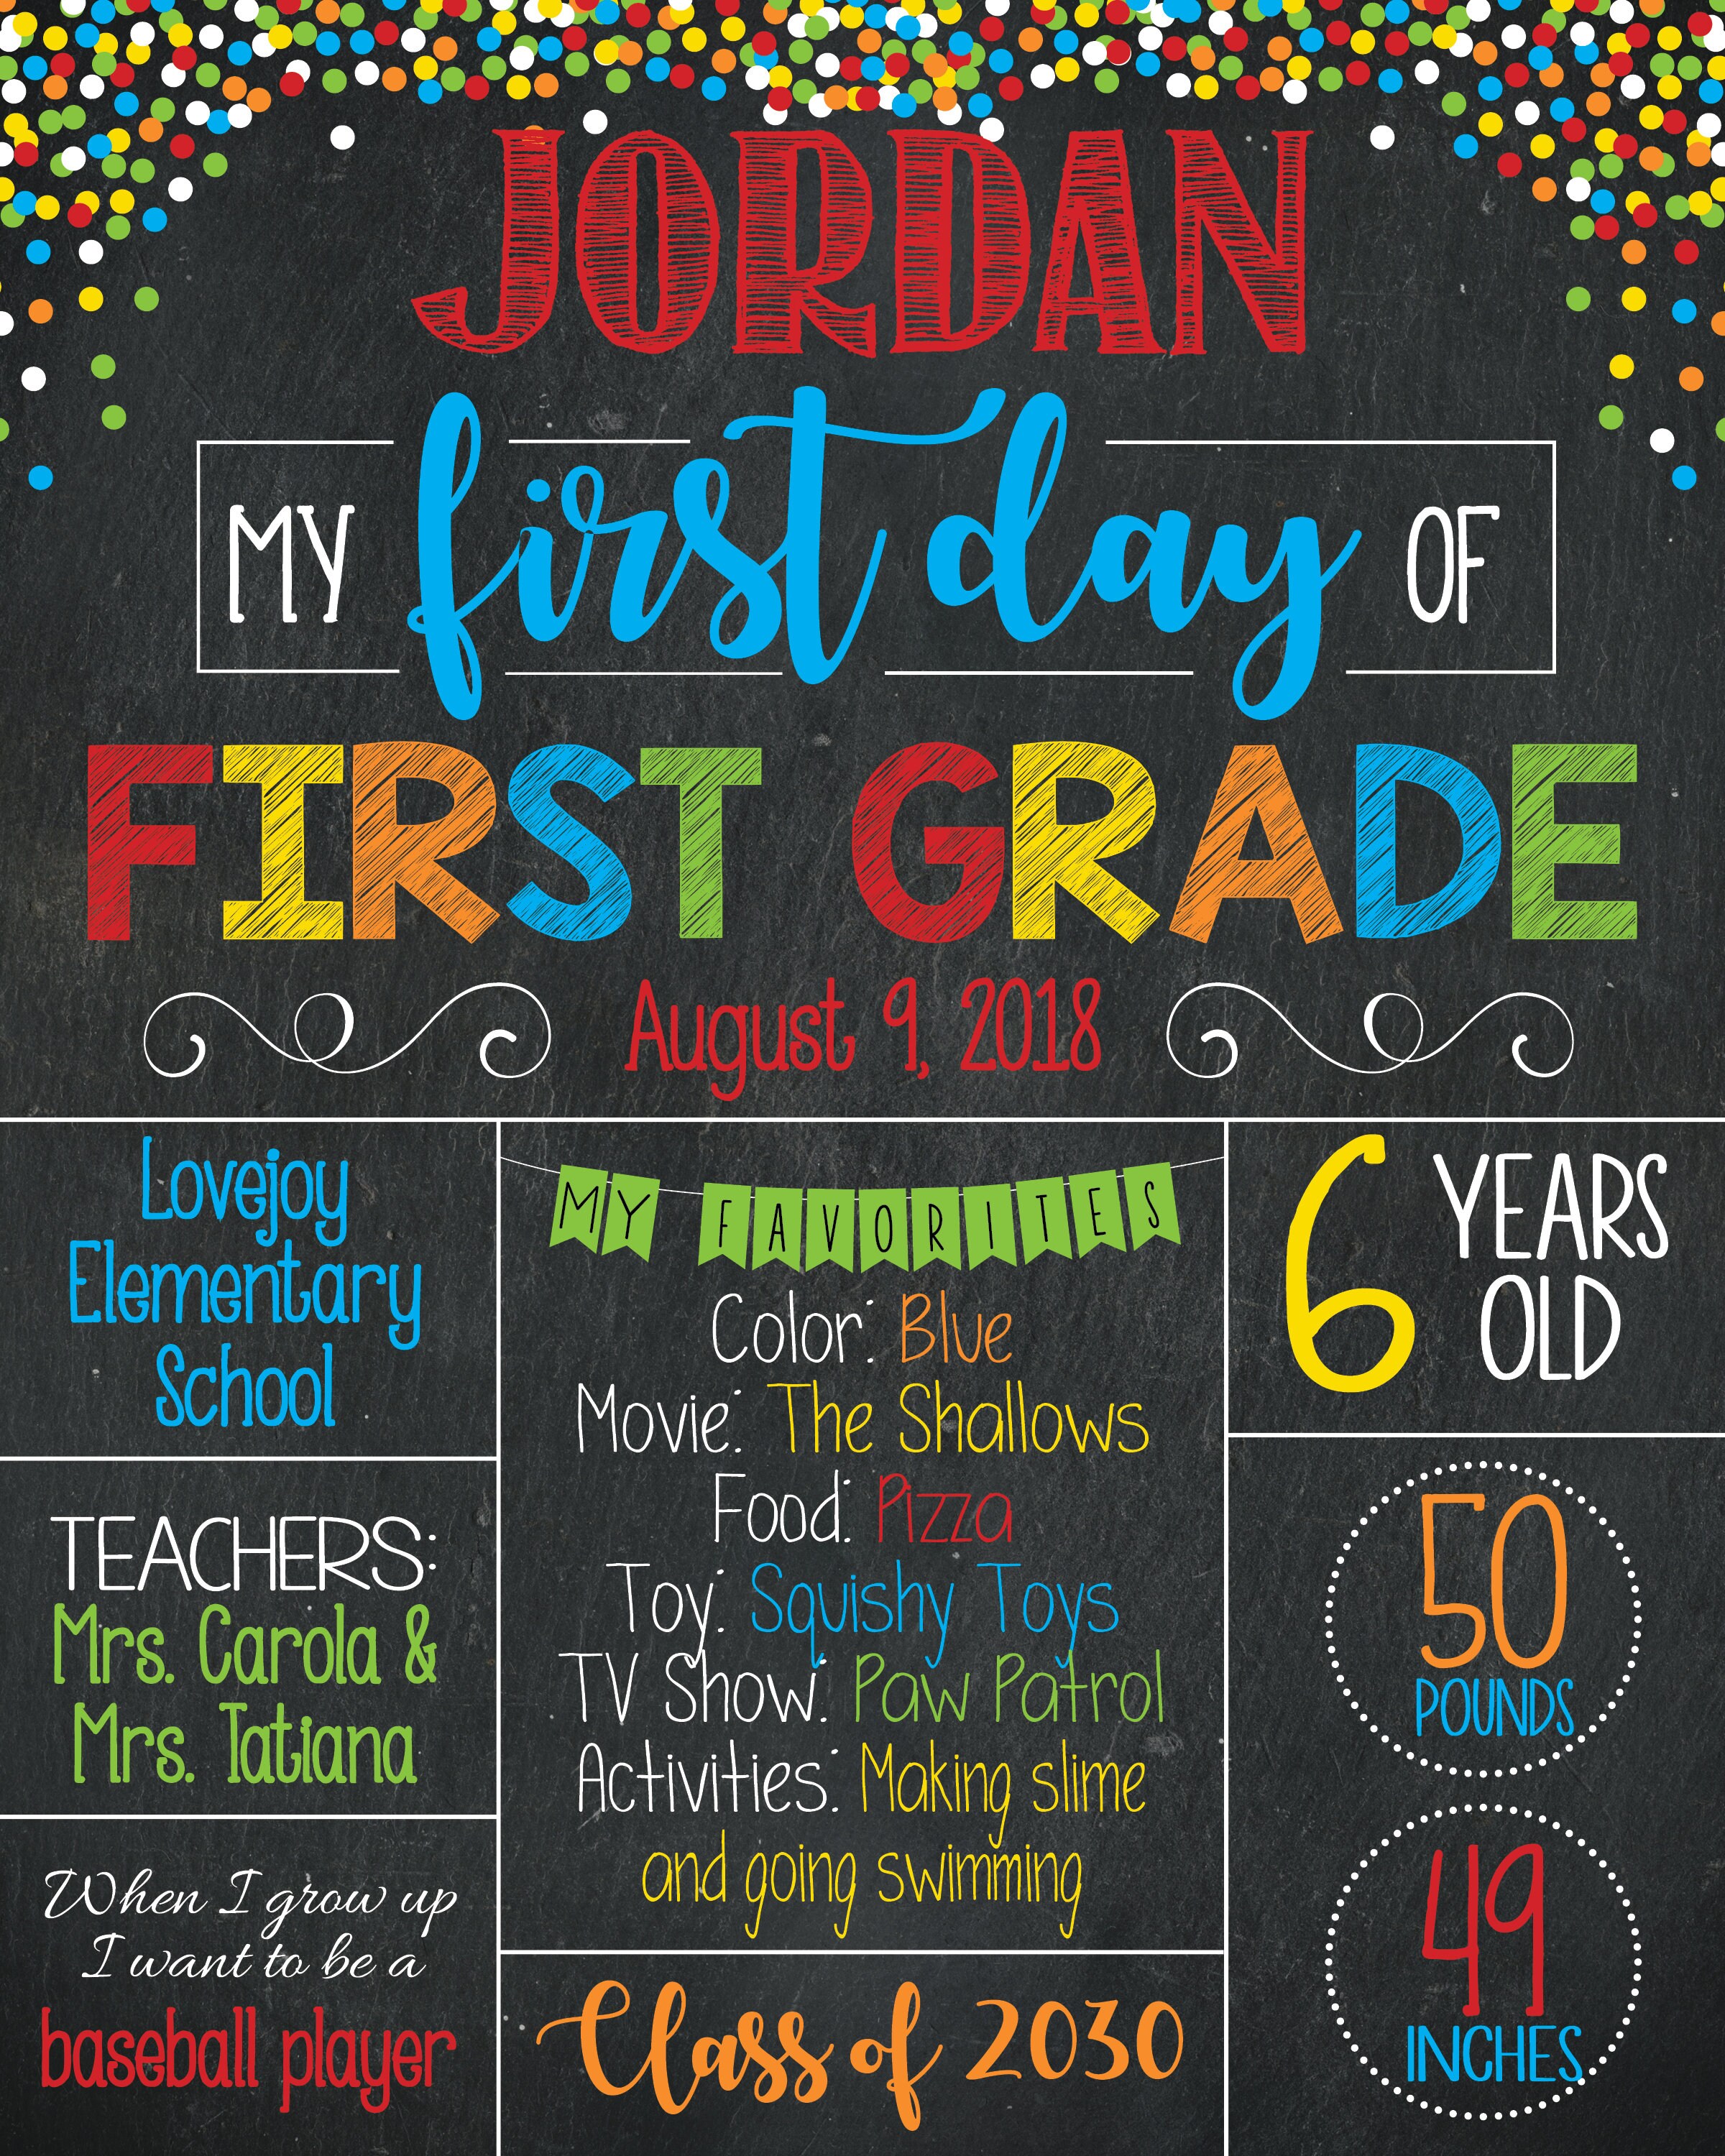 JORDAN
MY first day OF
FIRST GRADE
August 9, 2018
Lovejoy
Elementary
School
TEACHERS:
Mrs. Carola &
Mrs. Tatiana
When I grow up
I want to be a
baseball player
MY FAVORITES
Color: Blue
Movie: The Shallows
Food: Pizza
Toy: Squishy Toys
TV Show: Paw Patrol
Activities: Making slime
and going swimming
Class of 2030
6 YEARS
OLD
50
POUNDS
49
INCHES